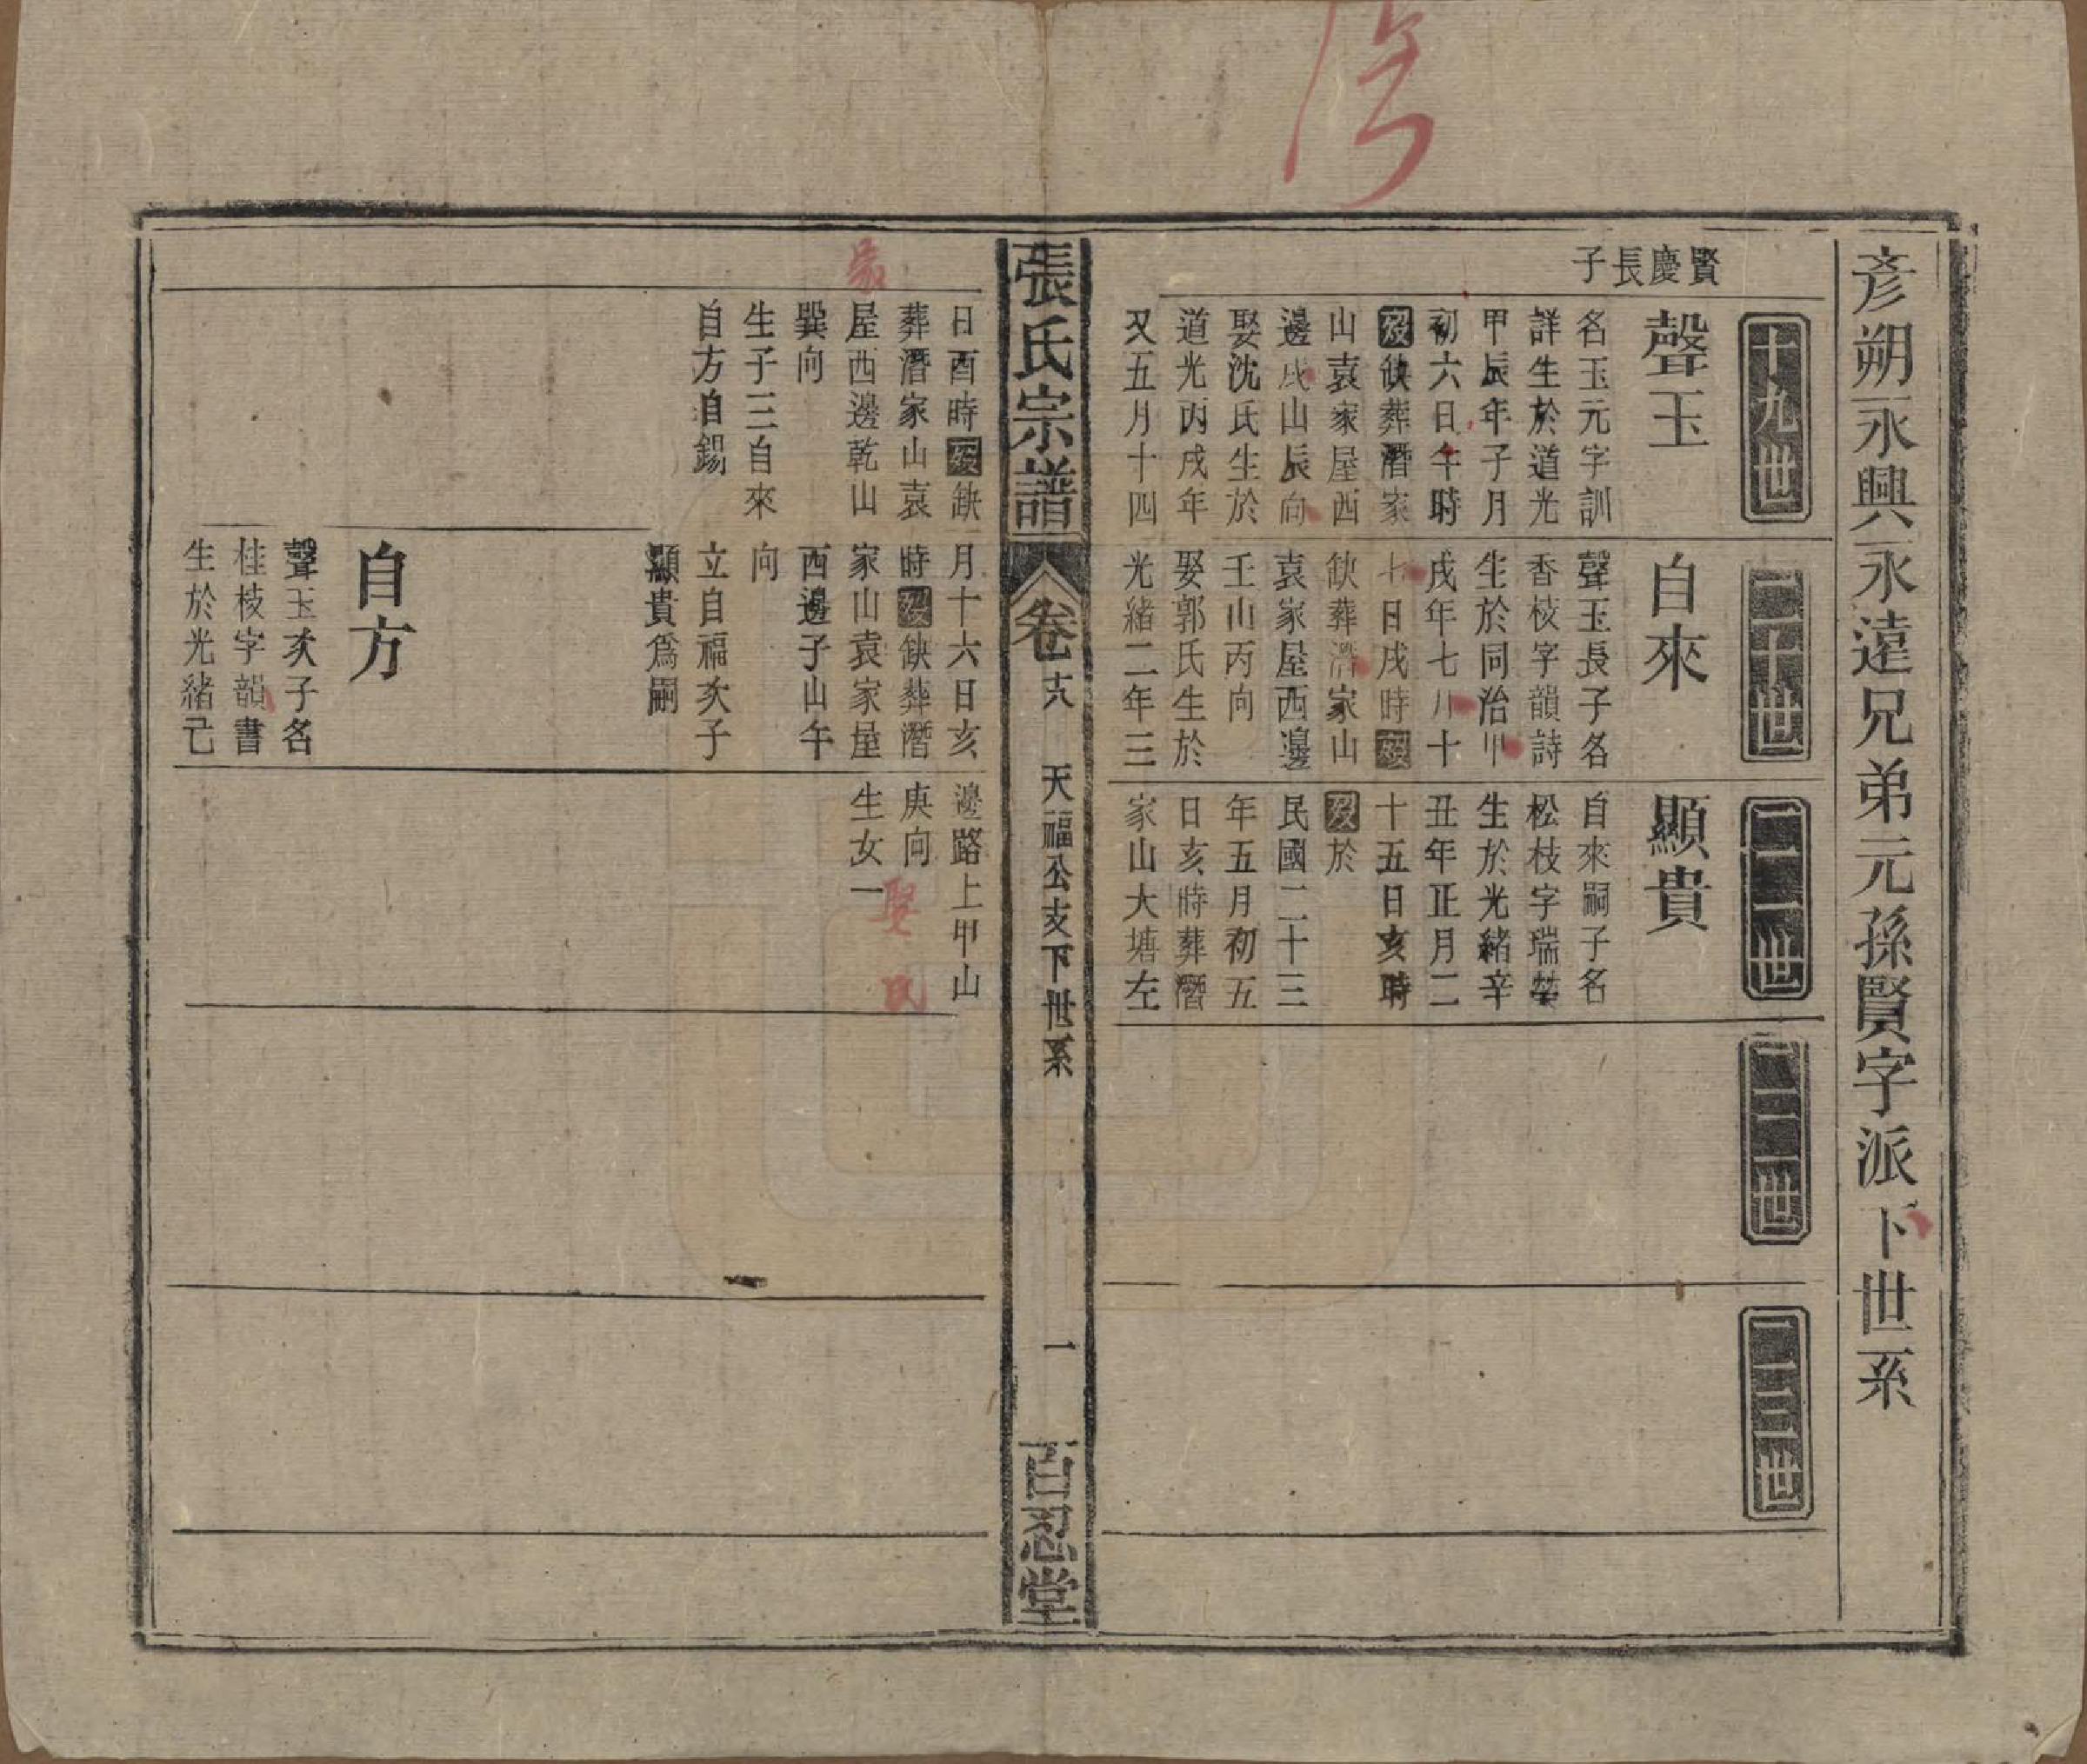 彥朔永興永遠兄弟元孫賢字派下世系
十九世
二十世
二一世
二二世
二三世
賢慶長子
聲玉
名玉元字訓
詳生於道光
甲辰年子月
初六日午時
歿缺葬潛家
山袁家屋西
邊戌山辰向
娶沈氏生於
道光丙戌年
又五月十四
日酉時歿缺
葬潛家山袁
屋西邊乾山
巽向
生子三自來
自方自錫
家
自來
聲玉長子名
香枝字韻詩
生於同治甲
戌年七月十
七日戌時歿
缺葬潛家山
袁家屋西邊
壬山丙向
娶郭氏生於
光緒二年三
月十六日亥
時歿缺葬潛
家山袁家屋
西邊子山午
向
立自福次子
顯貴爲嗣
自方
聲玉次子名
桂枝字韻書
生於光緒己
顯貴
自來嗣子名
松枝字瑞棻
生於光緒辛
丑年正月二
十五日亥時
歿於
民國二十三
年五月初五
日亥時葬潛
家山大塘左
邊路上甲山
庚向
生女一
娶 氏
張氏宗譜
卷十八
天福公支下世系
一
百忍堂